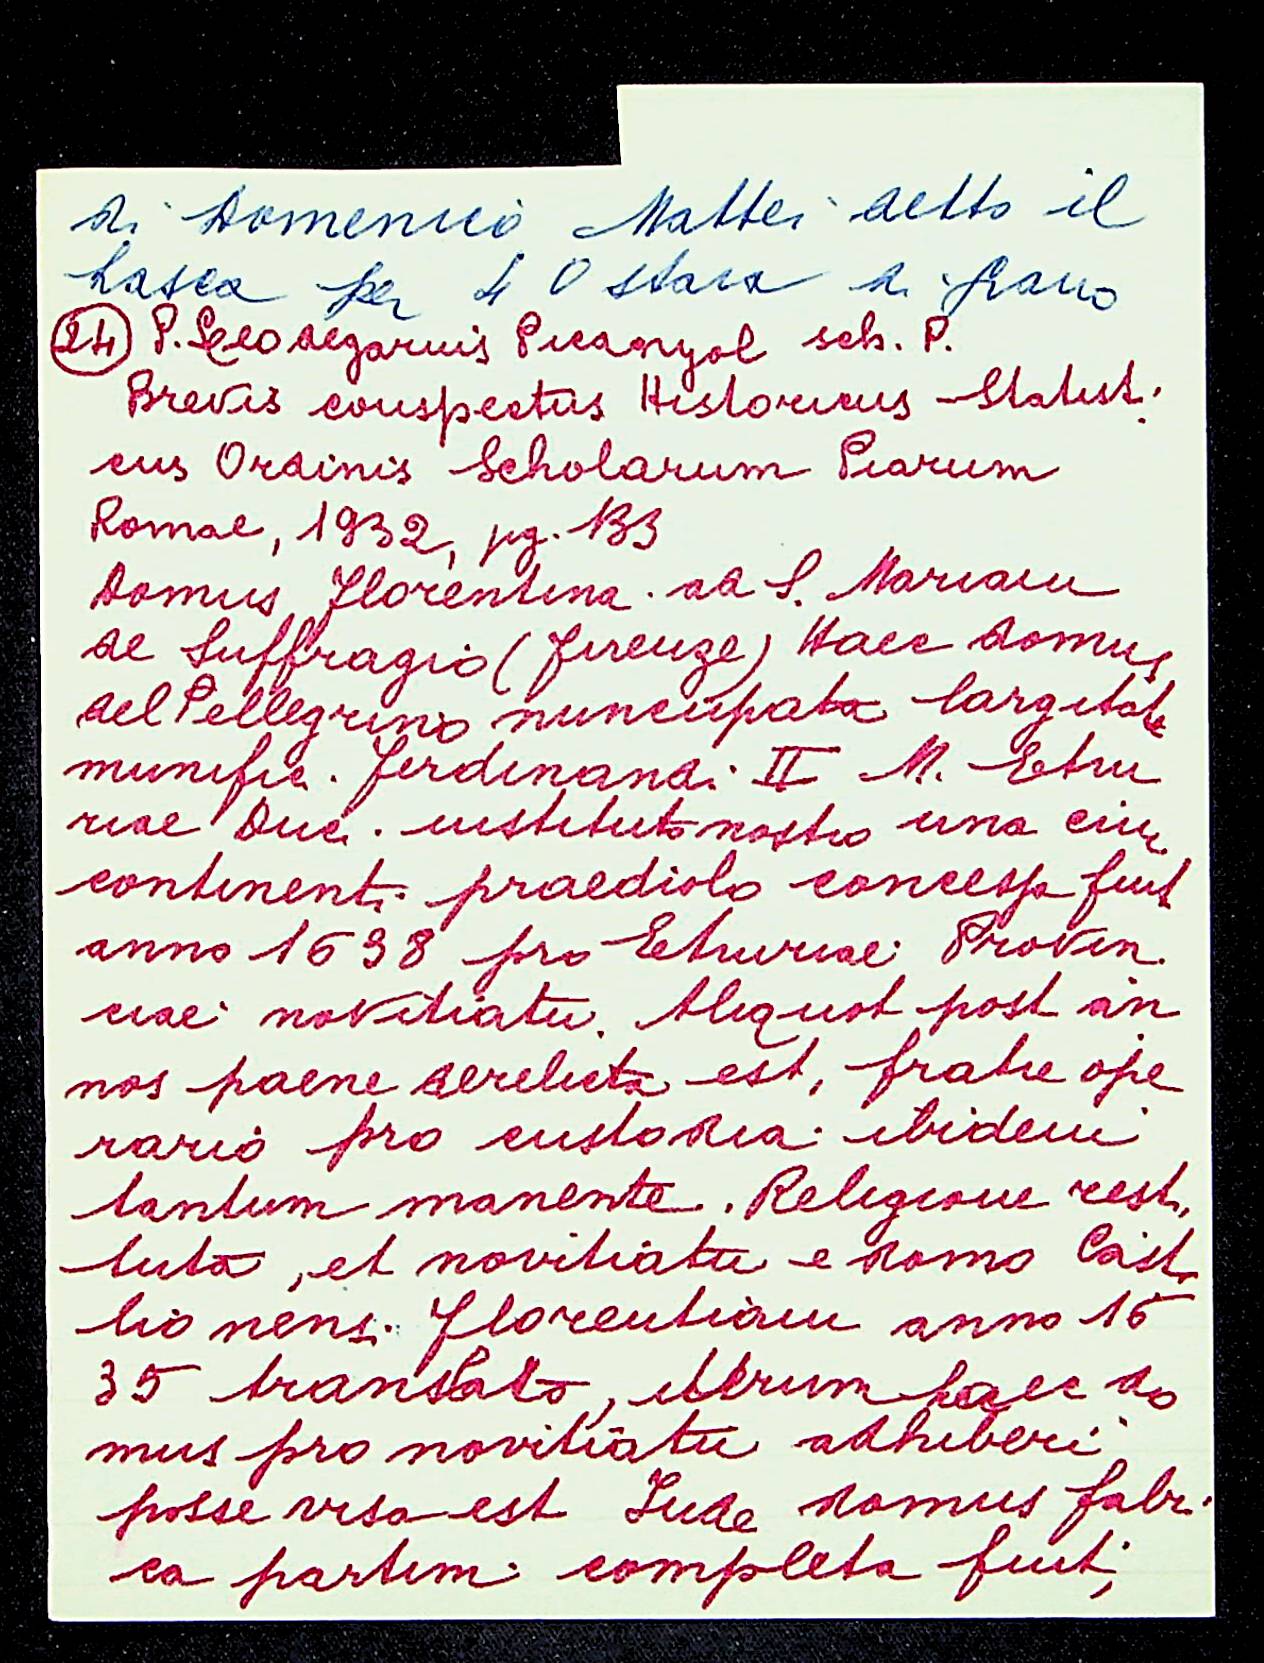 di Domenico Mattei detto il
Rasca per 40 stara di grano
24 P. Leodegarius Picanyol sch. P.
Brevis conspectus Historicus-Statisti
cus Ordinis Scholarum Piarum
Romae, 1932, pg. 133
Domus Florentina ad S. Mariam
de Suffragio (Firenze) Haec domus
del Pellegrino nuncupata largitate
munific. Ferdinandi II M. Etru
riae Duci. instituto nostro una cum
continenti praediolo concessa fuit
anno 1638 pro Etruriae Provin
ciae novitiatu. Aliquot post an
nos paene derelicta est, fratre ope
rario pro custodia ibidem
tantum manente. Religione resti
tuta, et novitiatu e domo Casti
lionensi Florentiam anno 16
35 translato, iterum haec do
mus pro novitiatu adhiberi
posse visa est Inde domus fabri
ca partim completa fuit;